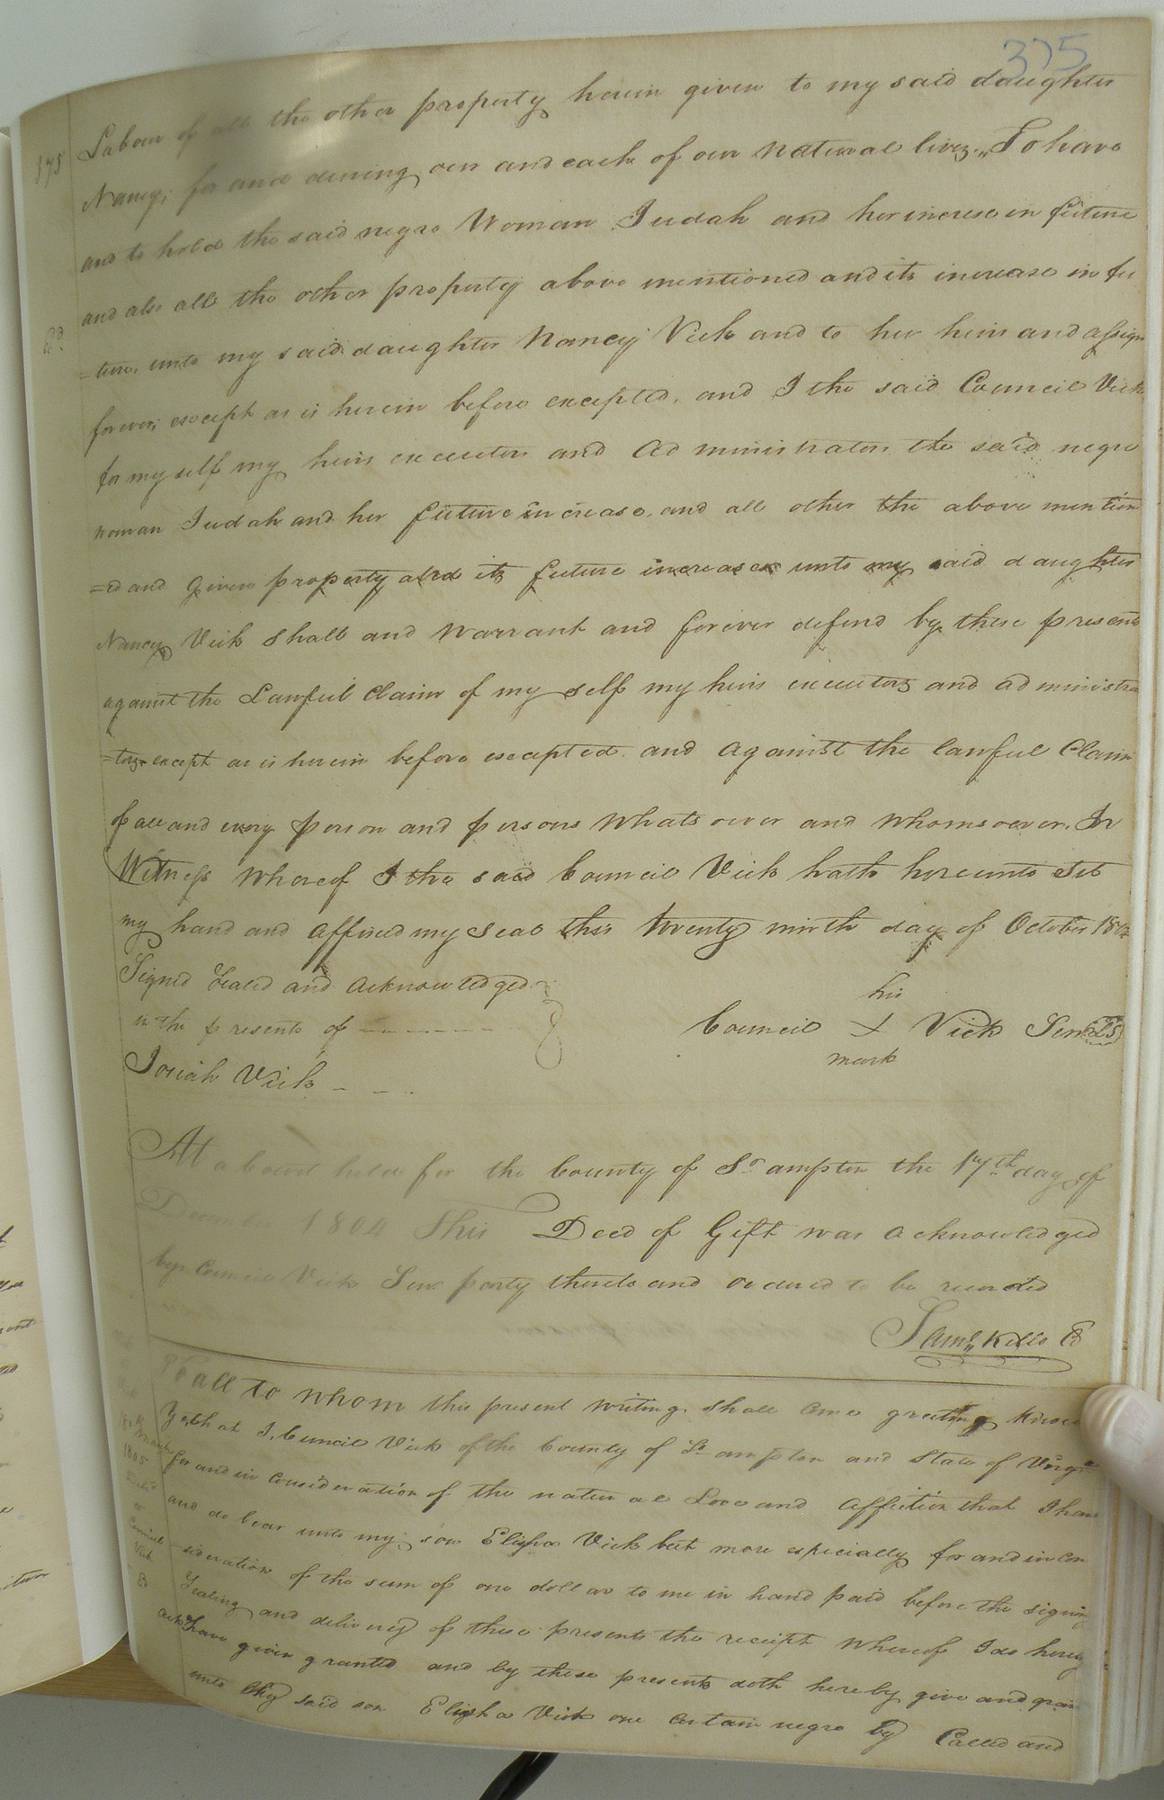 375
175 Labour of all the other property herein given to my said daughter
Nancy; for and during our and each of our natural lives. To have
and to hold the said negro Woman Judah and her increse in future
and also all the other property above mentioned and its increase in fu
=ture, unto my said daughter Nancy Vick and to her heirs and assigns
forever; except as is herein before excepted, and I the said Council Vick
for my self my heirs executors and Administrators the said negro
woman Judah and her future increase, and all other the above mention
=ed and given property and its future increase unto my said daughter
Nancy Vick Shall and Warrant and forever defend by these presents
against the Lawfull Claim of my self my heirs executors and administra
=tors except as is herein before excepted. and against the lawfull Claim
of all and every person and persons Whatsoever and whomsoever. In
Witness Whereof I the said Council Vick hath hereunto Set
my hand and affixed my Seal this twenty ninth day of October 1804
Signed Sealed and acknowledged
in the presents of
his
Council + Vick Senr LS
mark
Josiah Vick
At a Court held for the County of So ampton the 17th day of
December 1804 This Deed of Gift was acknowledged
by Council Vick Senr party thereto and ordered to be recorded
Saml Kello C
To all to whom this present writing shall come greeting Know
Ye that I, Council Vick of the County of So ampton and State of Virga
for and in consideration of the natural Love and affection that I have
and do bear unto my son Elisha Vick but more especially for and in con
sideration of the sum of one dollar to me in hand paid before the signing
Sealing and delivery of these presents the receipt Whereof I do hereby
ack have given granted and by these presents doth hereby give and grant
unto my said son Elisha Vick one certain negro boy Called and
1805
Council
Vick